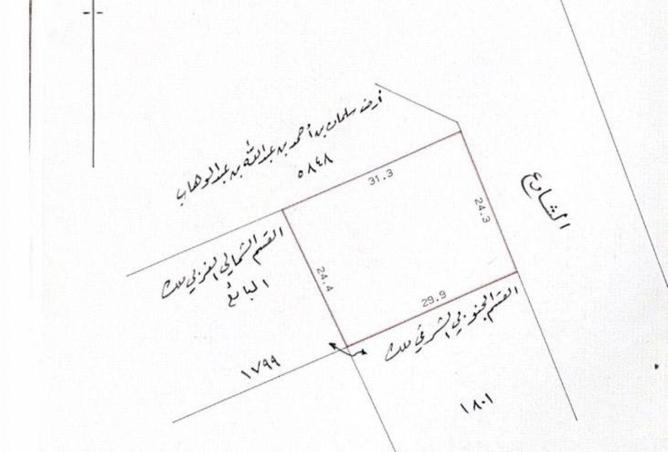 أرض سلمان بن أحمد بن عبدالله بن عبدالوهاب
٥٨٤٨
31.3
24.3
الشارع
القسم الشمالي الغربي ملك
البائع
24.4
29.9
القسم الجنوبي الشرقي ملك
١٧٩٩
١٨٠١